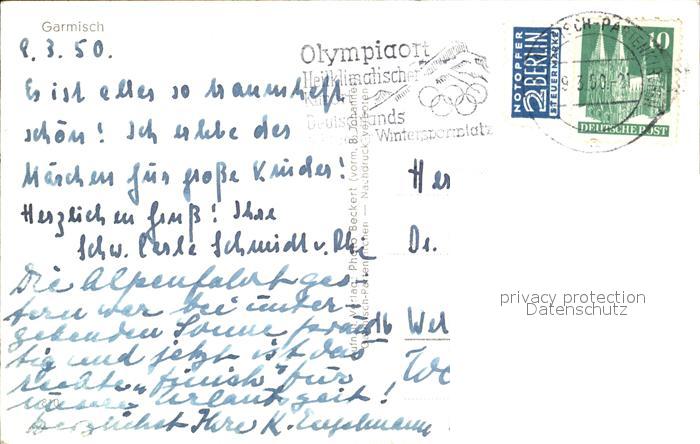 Garmisch
9.3.50.
Es ist alles so traumhaft
schön! Ich erlebe das
Märchen für große Kinder!
Herzlichen Gruß! Ihre
Schw. Carla Schmidt v. Rhe
Die Alpenfahrt ges-
tern war bei unter-
gehenden Sonne präch
tig und jetzt ist das
rechte "finish" für
unsere Urlaubszeit!
herzlichst Ihre K. Engelmann
Olympiaort
Heilklimatischer
Deutschlands
Wintersportplatz
NOTOPFER
2 BERLIN
STEUERMARKE
10
DEUTSCHE POST
9.3.50
Verlag: Photo Beckert (vorm. B. Johannes)
Garmisch-Partenkirchen — Nachdruck verboten
Her
Dr.
Wel
privacy protection
Datenschutz